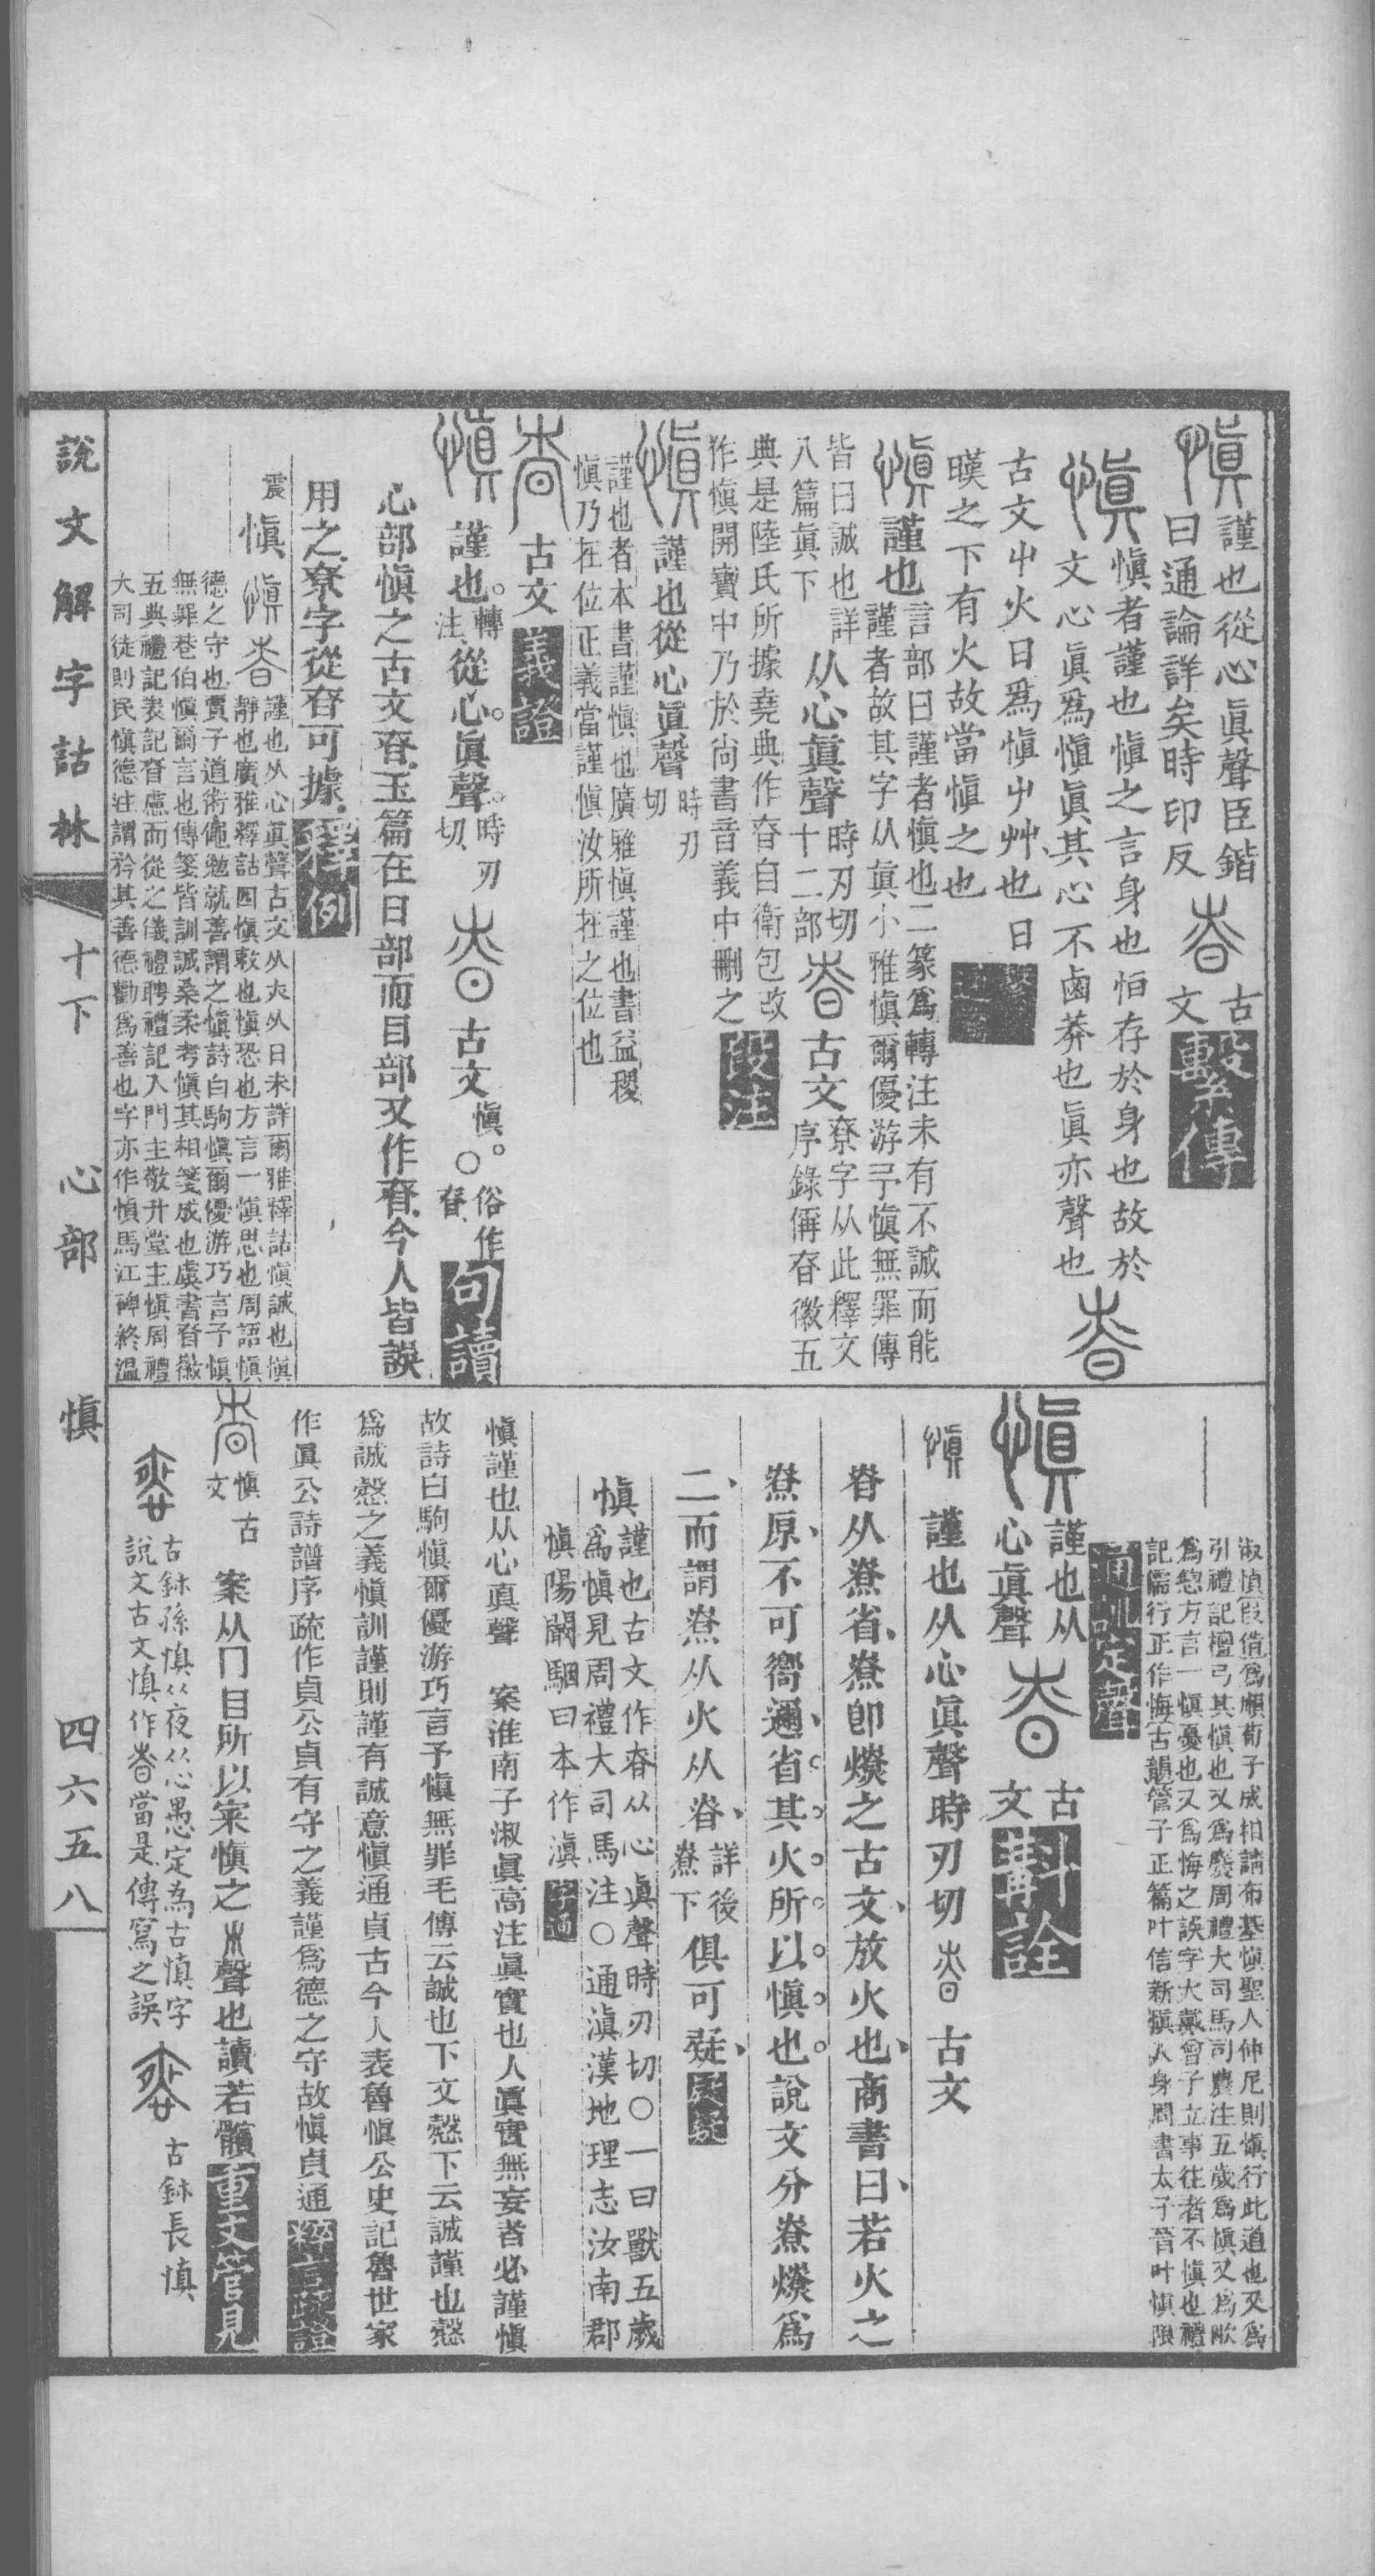 愼謹也從心眞聲臣鍇
曰通論詳矣時印反
昚古文
繫傳
愼愼者謹也愼之言身也怕存於身也故於
文心眞爲愼眞其心不鹵莽也眞亦聲也昚
古文屮火日爲愼屮艸也日
暵之下有火故當愼之也
愼謹也言部曰謹者愼也二篆爲轉注未有不誠而能
謹者故其字从眞小雅愼爾優游予愼無罪傳
皆曰誠也詳
八篇眞下
从心眞聲時刃切
十二部
昚古文尞字从此釋文
序錄偁昚徽五
典是陸氏所據堯典作昚自衛包改
作愼開寶中乃於尚書音義中刪之段注
愼謹也從心眞聲時刃
切
謹也者本書謹愼也廣雅愼謹也書益稷
愼乃在位正義當謹愼汝所在之位也
昚古文義證
愼謹也。轉
注從心。眞聲。時刃
切昚古文愼。○俗作
昚句讀
心部愼之古文昚玉篇在日部而目部又作昚今人皆誤
用之尞字從昚可據釋例
震
愼愼昚謹也从心眞聲古文从火从日未詳爾雅釋詁愼誠也愼
靜也廣雅釋詁四愼敕也愼恐也方言一愼思也周語愼
德之守也賈子道術僶勉就善謂之愼詩白駒愼爾優游巧言予愼
無罪巷伯愼爾言也傳箋皆訓誠桑柔考愼其相箋成也虞書昚徽
五典禮記表記昚慮而從之儀禮聘禮記入門主敬升堂主愼周禮
大司徒則民愼德注謂矜其善德勸爲善也字亦作慎馬江碑終溫
說文解字詁林　十下　心部　愼　四六五八
淑愼假借爲順荀子成相請布基愼聖人仲尼則愼行此道也又爲
引禮記檀弓其愼也又爲麎周禮大司馬司農注五歲爲愼又爲
爲怒方言一愼憂也又爲悔之誤字大戴曾子立事往者不愼也禮
記儒行正作悔古韻管子正篇叶信新愼人身周書太子晉叶愼限
通訓定聲
愼謹也从
心眞聲
昚古
文
斠詮
愼　謹也从心眞聲時刃切昚古文
昚从尞省尞卽燎之古文放火也商書曰若火之
尞原不可嚮邇省其火所以愼也說文分尞燎爲
二而謂尞从火从昚詳後
尞下俱可疑
愼謹也古文作昚从心眞聲時刃切○一曰獸五歲
爲愼見周禮大司馬注○通滇漢地理志汝南郡
愼陽闞駰曰本作滇字通
愼謹也从心眞聲　案淮南子淑眞高注眞實也人眞實無妄者必謹愼
故詩白駒愼爾優游巧言予愼無罪毛傳云誠也下文愨下云誠謹也愨
爲誠愨之義愼訓謹則謹有誠意愼通貞古今人表魯愼公史記魯世家
作眞公詩譜序疏作貞公貞有守之義謹爲德之守故愼貞通粹言疏證
愼古
文　案从冂目所以宷愼之聲也讀若髕重文管見
古鉩孫慎从夜从心愚定為古慎字
說文古文慎作昚當是傳寫之誤
古鉩長慎